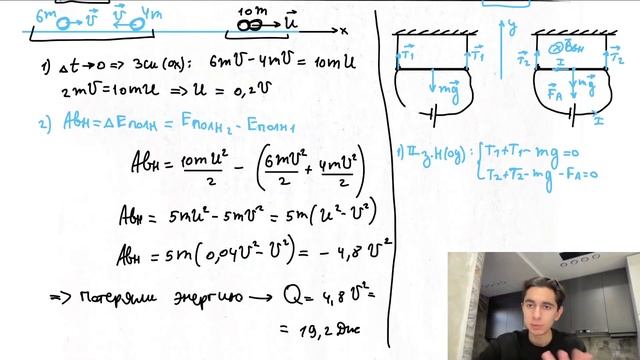 6m v⃗ v⃗ 4m 10m u⃗ x
1) Δt→0 => ЗСИ (ОХ): 6mV - 4mV = 10mU
2mV = 10mU => U = 0,2V
2) Aвн = ΔEполн = Eполн2 - Eполн1
Aвн = 10mU²/2 - (6mV²/2 + 4mV²/2)
Aвн = 5mU² - 5mV² = 5m(U² - V²)
Aвн = 5m(0,04V² - V²) = - 4,8 V²
=> Потеряли энергию → Q = 4,8 V² =
= 19,2 Дж
y
T⃗1 T⃗1 mg⃗
T⃗2 T⃗2 ⊗B⃗вн I F⃗A mg⃗ I
1) II з.Н (ОУ): { T1+T1-mg=0
T2+T2-mg-FA=0